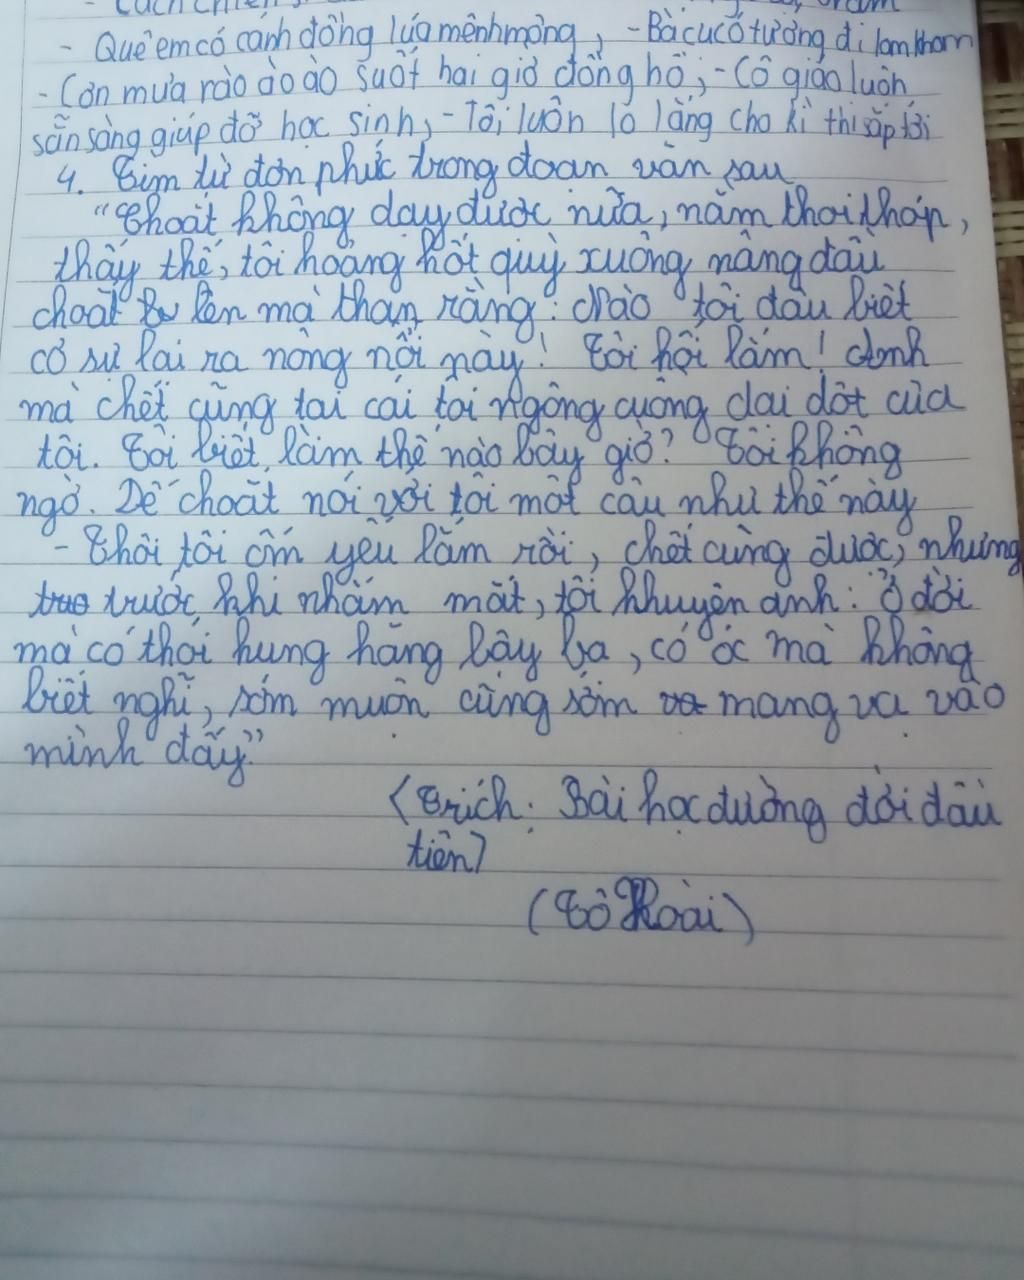 - Quê em có cánh đồng lúa mênh mông, - Bà cụ có tướng đi lom khom
- Cơn mưa rào ào ào suốt hai giờ đồng hồ, - Cô giáo luôn
sẵn sàng giúp đỡ học sinh, - Tôi luôn lo lắng cho kì thi sắp tới
4. Tìm từ đơn phức trong đoạn văn sau
"Choắt không dạy được nữa, nằm thoi thóp,
thấy thế, tôi hoảng hốt quỳ xuống nâng đầu
choắt lên mà than rằng: Nào tôi đâu biết
cơ sự lại ra nông nỗi này! Tôi hối lắm! Anh
mà chết cũng tại cái tội ngông cuồng dại dột của
tôi. Tôi biết làm thế nào bây giờ? Tôi không
ngờ. Dế choắt nói với tôi một câu như thế này
- Thôi tôi ốm yếu lắm rồi, chết cũng được, nhưng
trước khi nhắm mắt, tôi khuyên anh: Ở đời
mà có thói hung hăng bậy bạ, có óc mà không
biết nghĩ, sớm muộn cũng sớm mang vạ vào
mình đấy"
(Trích: Bài học đường đời đầu
tiên)
(Tô Hoài)